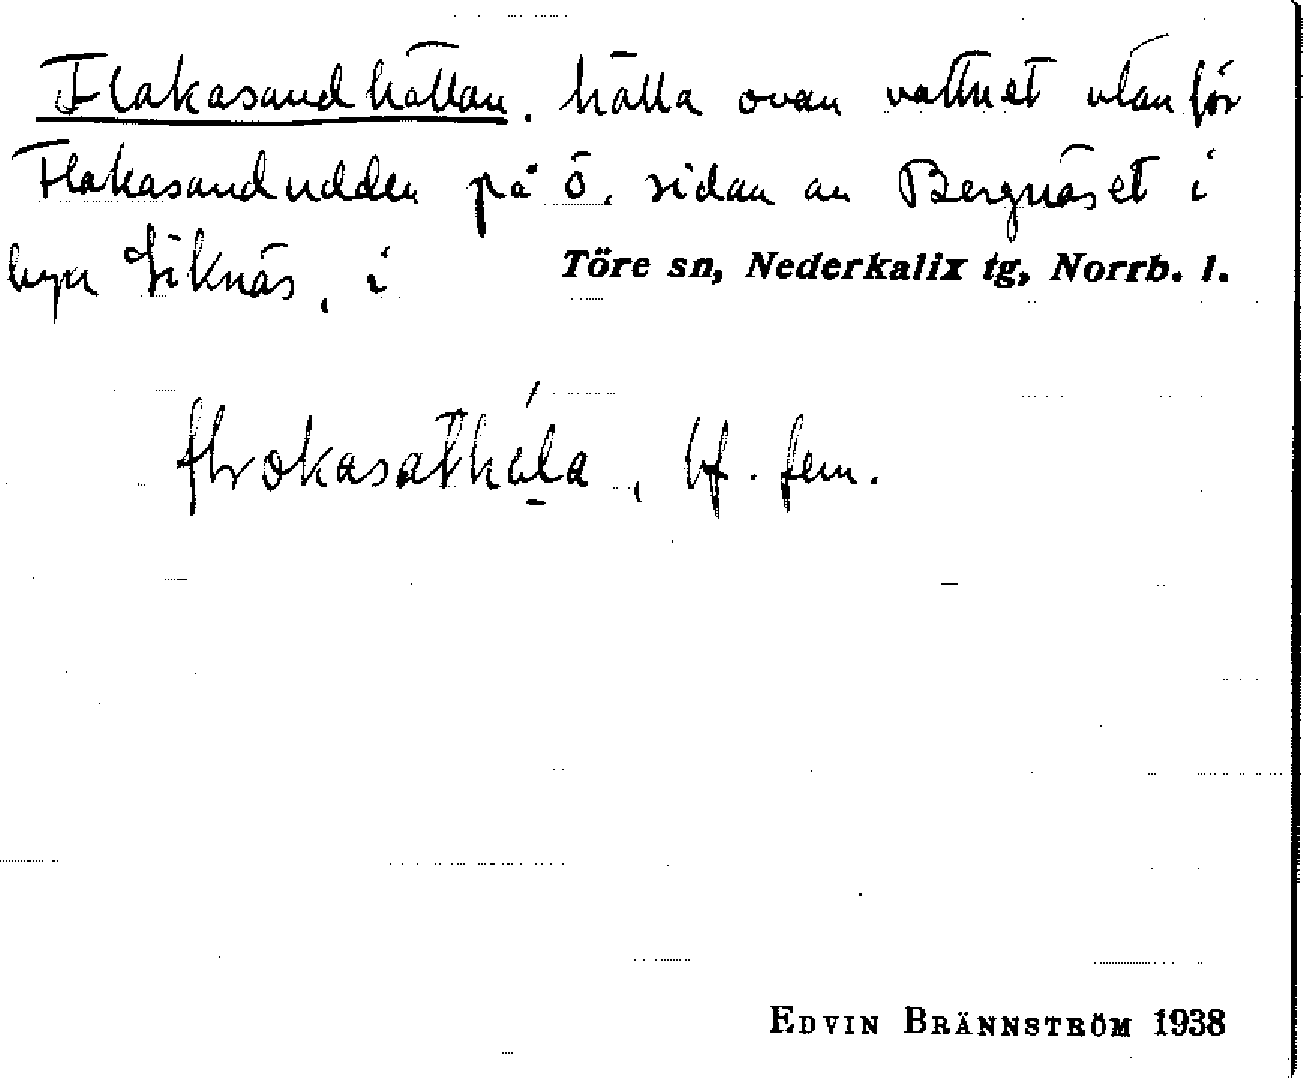 Flakasandhällan. hälla ovan vattnet utanför
Flakasandudden på ö. sidan av Bergnäset i
byn Siknäs, i Töre sn, Nederkalix tg, Norrb. l.
bf. fem.
EDVIN BRÄNNSTRÖM 1938